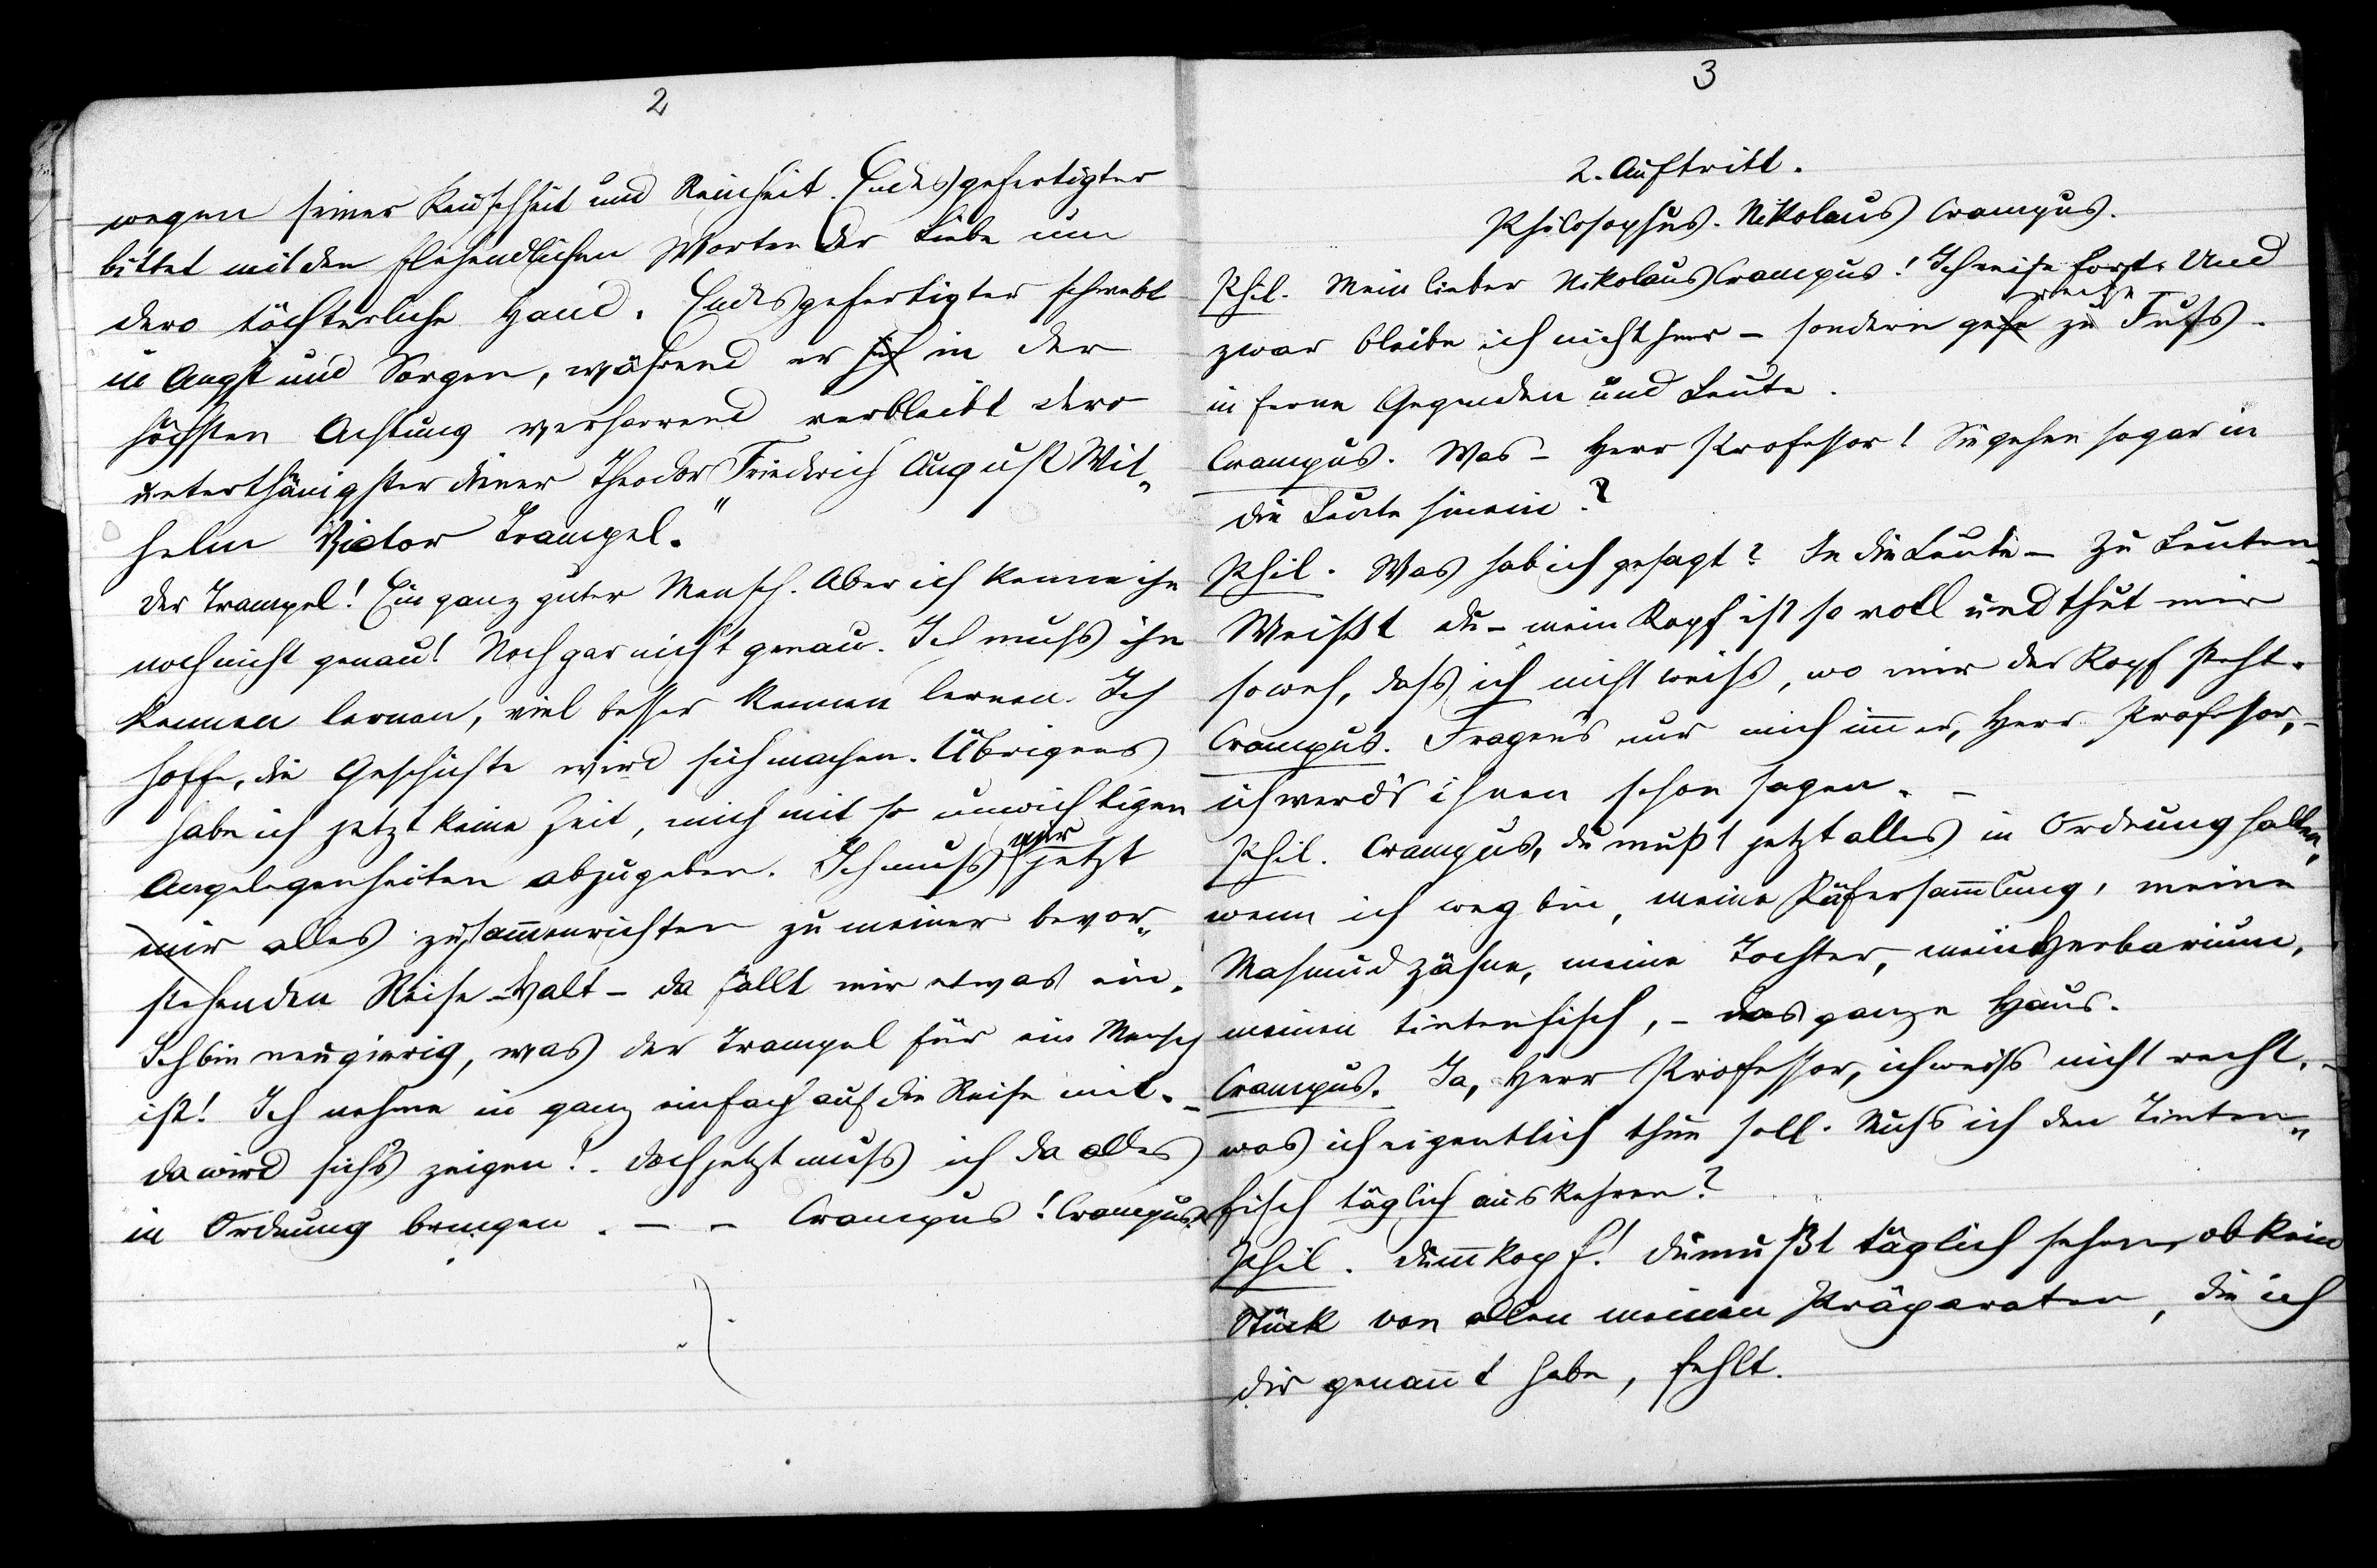 2
wegen seiner Keuschheit und Reinheit. Endesgefertigter
bittet mit den flehendlichen Worten der Liebe um
dero töchterliche Hand. Endesgefertigter schwebt
in Angst und Sorgen, während er sich in der
höchsten Achtung verharrend verbleibt dero
unterthänigster diener Theodor Friedrich August Wil„
helm Victor Trampel."
Der Trampel! Ein ganz guter Mensch. Aber ich kenne ihn
noch nicht genau! Noch gar nicht genau. Ich muss ihn
kennen lernen, viel besser kennen lernen. Ich
hoffe, die Geschichte wird sich machen. Übrigens
habe ich jetzt keine Zeit, mich mit so unwichtigen
Angelegenheiten abzugeben. Ich muss mir jetzt
mir alles zusam̅enrichten zu meiner bevor„
stehenden Reise - Halt - da fällt mir etwas ein.
Ich bin neugierig, was der Trampel für ein Mensch
ist! Ich nehme in ganz einfach auf die Reise mit. -
da wird sich's zeigen!. doch jetzt muss ich da alles
in Ordnung bringen. - - Crampus! Crampus!
3
2. Auftritt.
Philosophus. Nikolaus Crampus.
Phil. Mein lieber Nikolaus Crampus! Ich reise fort. Und
zwar bleibe ich nicht hier - sondern gehe reise zu Fuss -
in ferne Gegenden und Leute.
Crampus. Was - Herr Professor! Sie gehen sogar in
die Leute hinein?
Phil. Was hab ich gesagt? In die Leute - Zu Leuten -
Weißt du - mein Kopf ist so voll und thut mir
so weh, dass ich nicht weiss, wo mir der Kopf steht.
Crampus. Fragen's nur mich im̅er, Herr Professor, -
ich werd's ihnen schon sagen. -
Phil. Crampus, du mußt jetzt alles in Ordnung halten,
wenn ich weg bin, meine Käfersam̅lung, meine
Mahmudzähne, meine Tochter, mein Herbarium,
meinen tintenfisch, - das ganze Haus.
Crampus. Ja, Herr Professor, ich weiss nicht recht, -
was ich eigentlich thun soll. Muss ich den Tinten„
fisch täglich auskehren?
Phil. Dum̅kopf! Du mußt täglich sehen, ob kein
Stück von allen meinen Präparaten, die ich
dir genan̅t habe, fehlt.